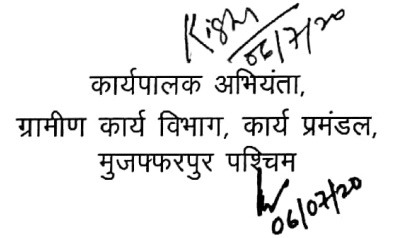 06/7/20
कार्यपालक अभियंता,
ग्रामीण कार्य विभाग, कार्य प्रमंडल,
मुजफ्फरपुर पश्चिम
06/07/20